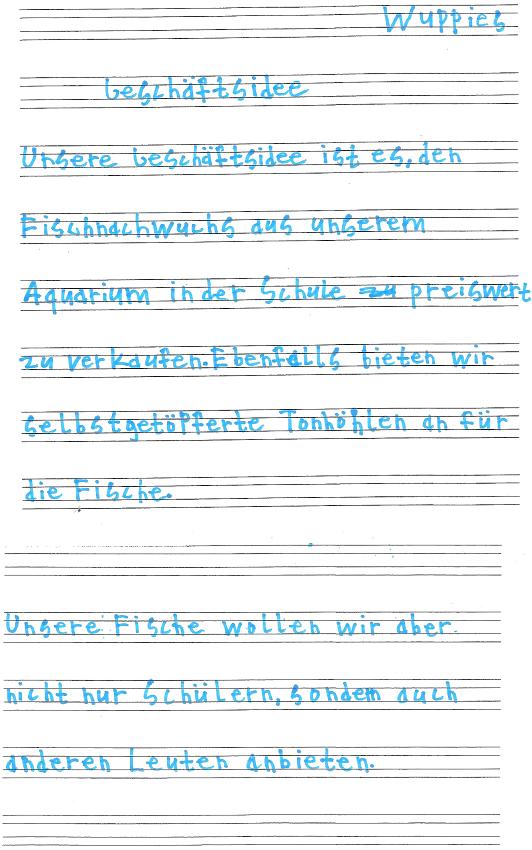 Wuppies
Geschäftsidee
Unsere Geschäftsidee ist es, den
Fischnachwuchs aus unserem
Aquarium in der Schule zu preiswert
zu verkaufen. Ebenfalls bieten wir
selbstgetöpferte Tonhöhlen an für
die Fische.
Unsere Fische wollen wir aber
nicht nur Schülern, sondern auch
anderen Leuten anbieten.